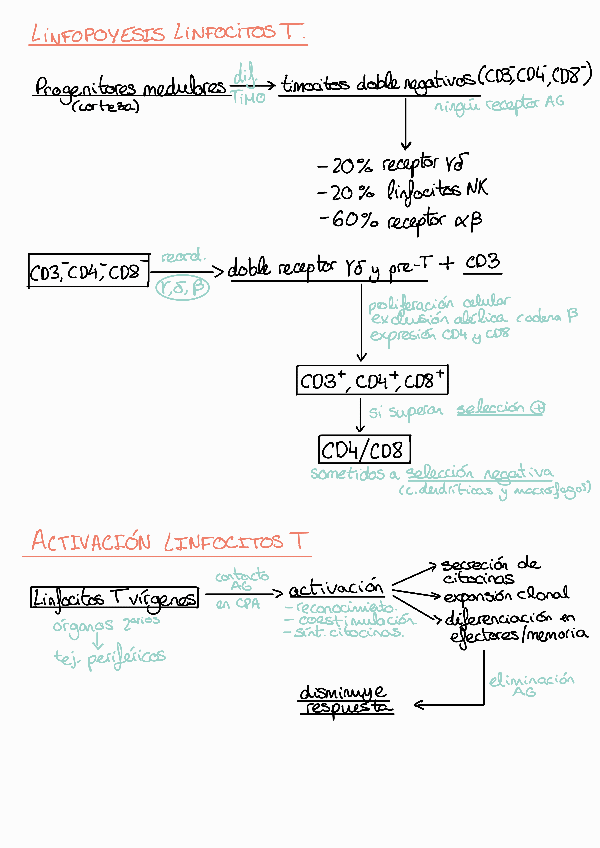 LINFOPOYESIS LINFOCITOS T.
Progenitores medulares dif. TIMO → timocitos doble negativos (CD3⁻, CD4⁻, CD8⁻)
(corteza)
ningún receptor AG
-20% receptor γδ
-20% linfocitos NK
-60% receptor αβ
CD3,⁻CD4,⁻CD8⁻ reord. → doble receptor γδ y pre-T + CD3
γ,δ,β
proliferación celular
exclusión alélica cadena β
expresión CD4 y CD8
CD3⁺, CD4⁺, CD8⁺
si superan selección ⊕
CD4/CD8
sometidos a selección negativa
(c. dendríticas y macrófagos)
ACTIVACIÓN LINFOCITOS T
Linfocitos T vírgenes
órganos 2arios
tej. periféricos
contacto
AG
en CPA
activación
- reconocimiento.
- coestimulación
- sínt. citocinas.
secreción de
citocinas
expansión clonal
diferenciación en
efectores/memoria
eliminación
AG
disminuye
respuesta